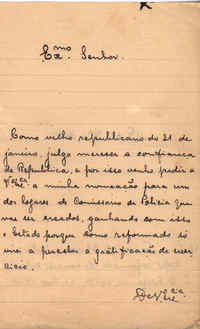 Exmo. Senhor.
Como velho republicano do 31 de
janeiro, julgo merecer a confiança
da Republica, e por isso venho pedir a
V. Excia. a minha nomeação para um
dos logares de Comissario de Policia que
vão ser creados, ganhando com isso
o Estado porque como reformado só
vou a perceber a gratificação de exer
cicio.
De V. Excia